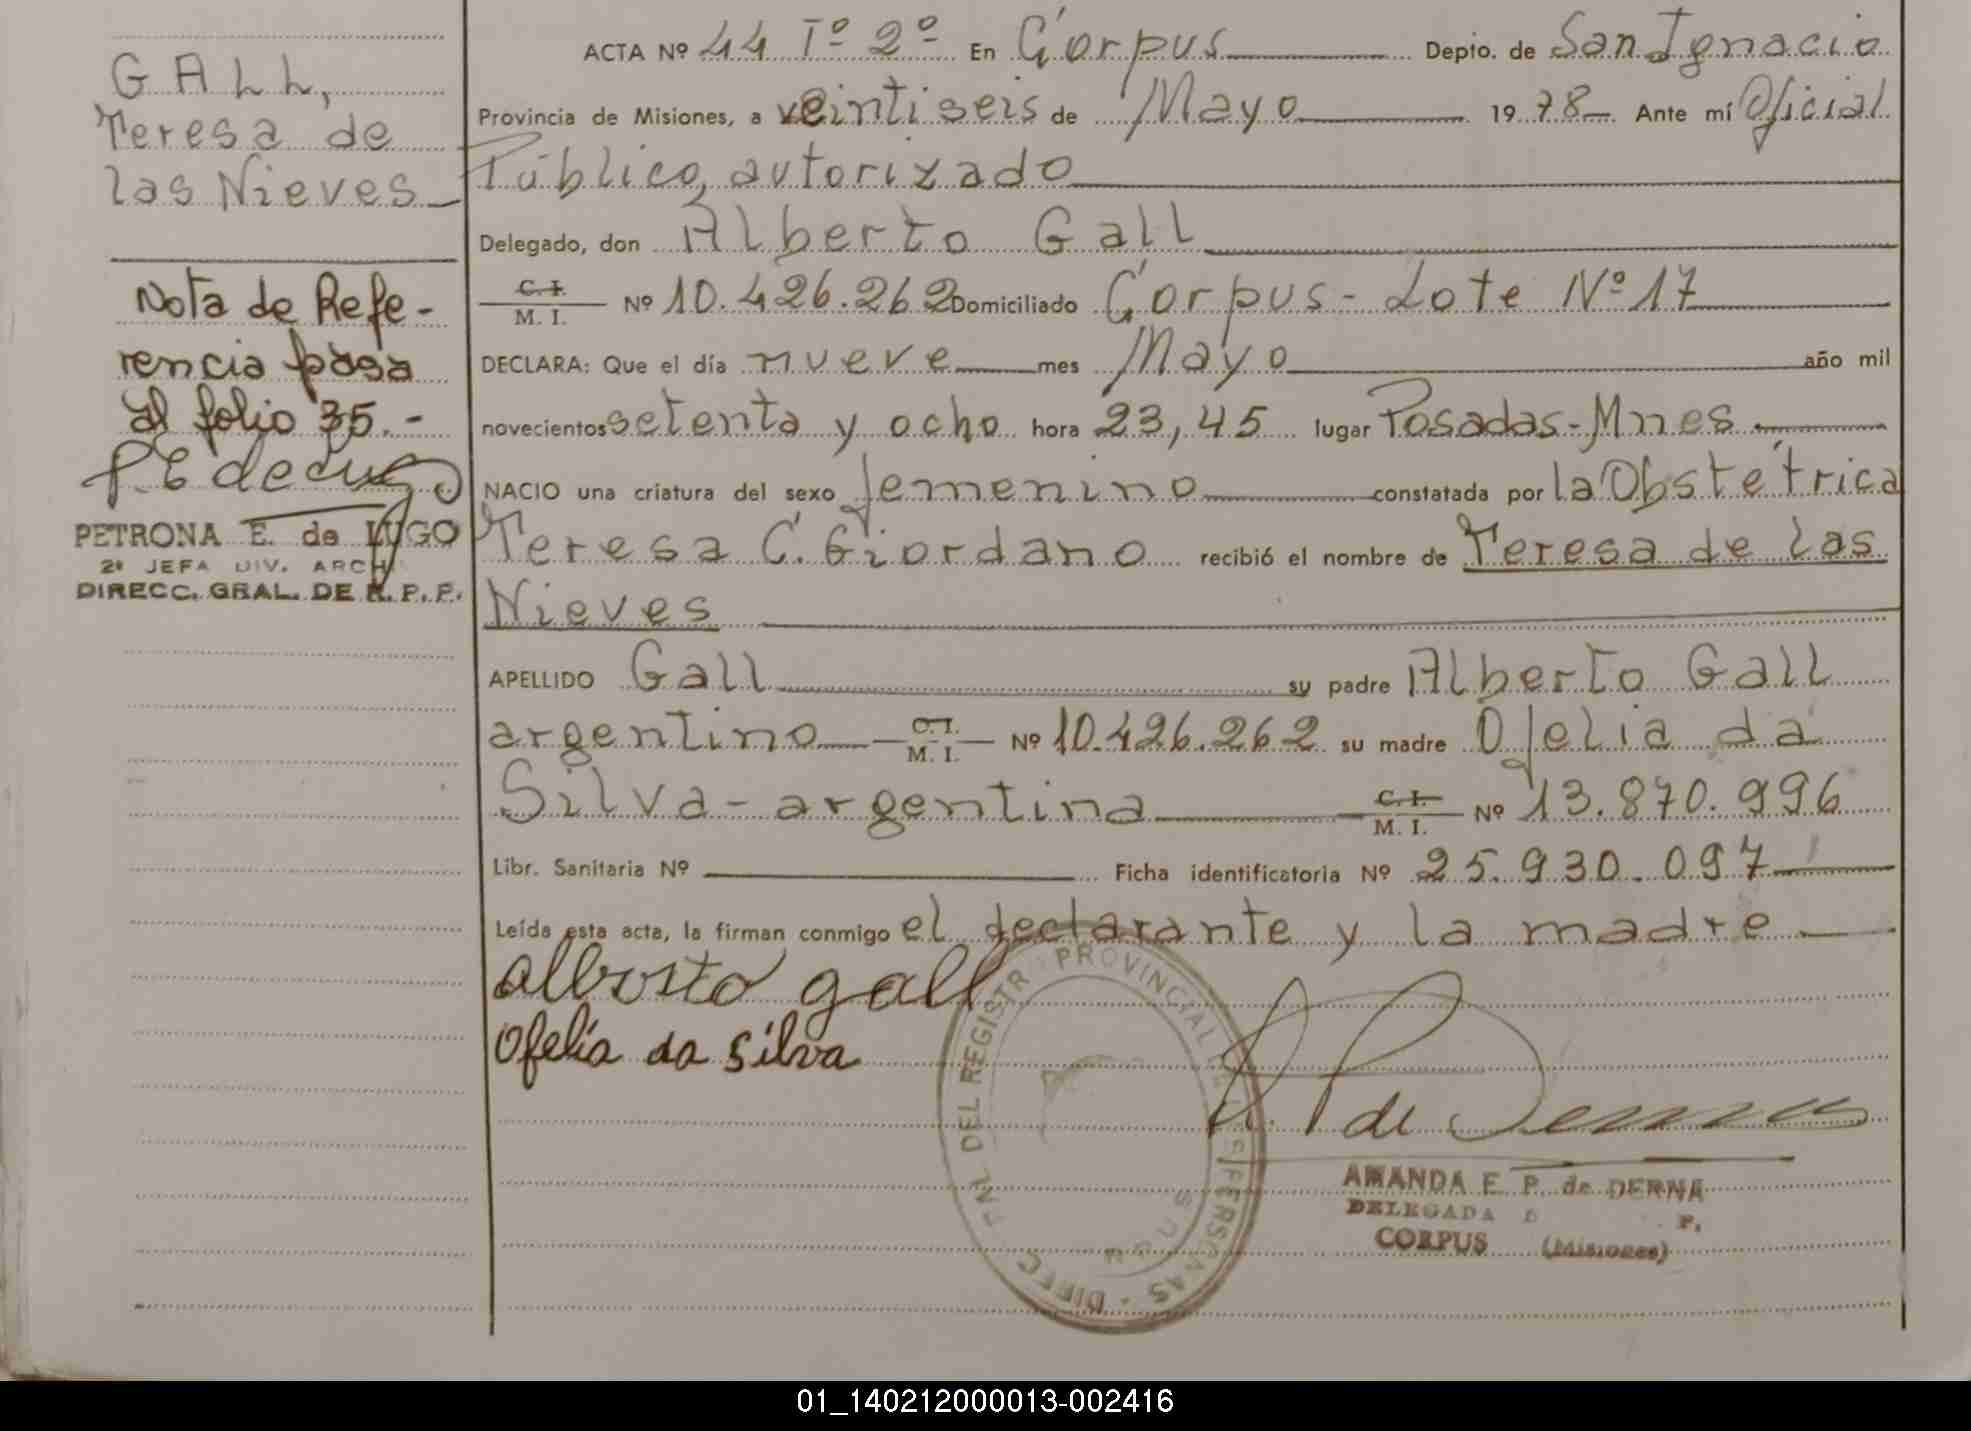 GALL,
Teresa de
las Nieves
Nota de Refe-
rencia pasa
al folio 35.-
PETRONA E. de LUGO
2ª JEFA DIV. ARCH
DIRECC. GRAL. DE R. P. P.
ACTA Nº 44 Tº 2º En Corpus Depto. de San Ignacio
Provincia de Misiones, a veintiseis de Mayo 1978 Ante mí Oficial
Público, autorizado
Delegado, don Alberto Gall
C. I.
M. I. Nº 10.426.262 Domiciliado Corpus - Lote Nº 17
DECLARA: Que el día nueve mes Mayo año mil
novecientos setenta y ocho hora 23,45 lugar Posadas-Mnes
NACIO una criatura del sexo femenino constatada por la Obstétrica
Teresa C. Giordano recibió el nombre de Teresa de las
Nieves
APELLIDO Gall su padre Alberto Gall
argentino C. I.
M. I. Nº 10.426.262 su madre Ofelia da
Silva - argentina C. I.
M. I. Nº 13.870.996
Libr. Sanitaria Nº Ficha identificatoria Nº 25.930.097
Leída esta acta, la firman conmigo el declarante y la madre
alberto gall
Ofelia da silva
DEL REGISTR PROVINCIAL DE LAS PERSONAS - DIREC
AMANDA E. P. de DERNA
DELEGADA
CORPUS (Misiones)
01_140212000013-002416